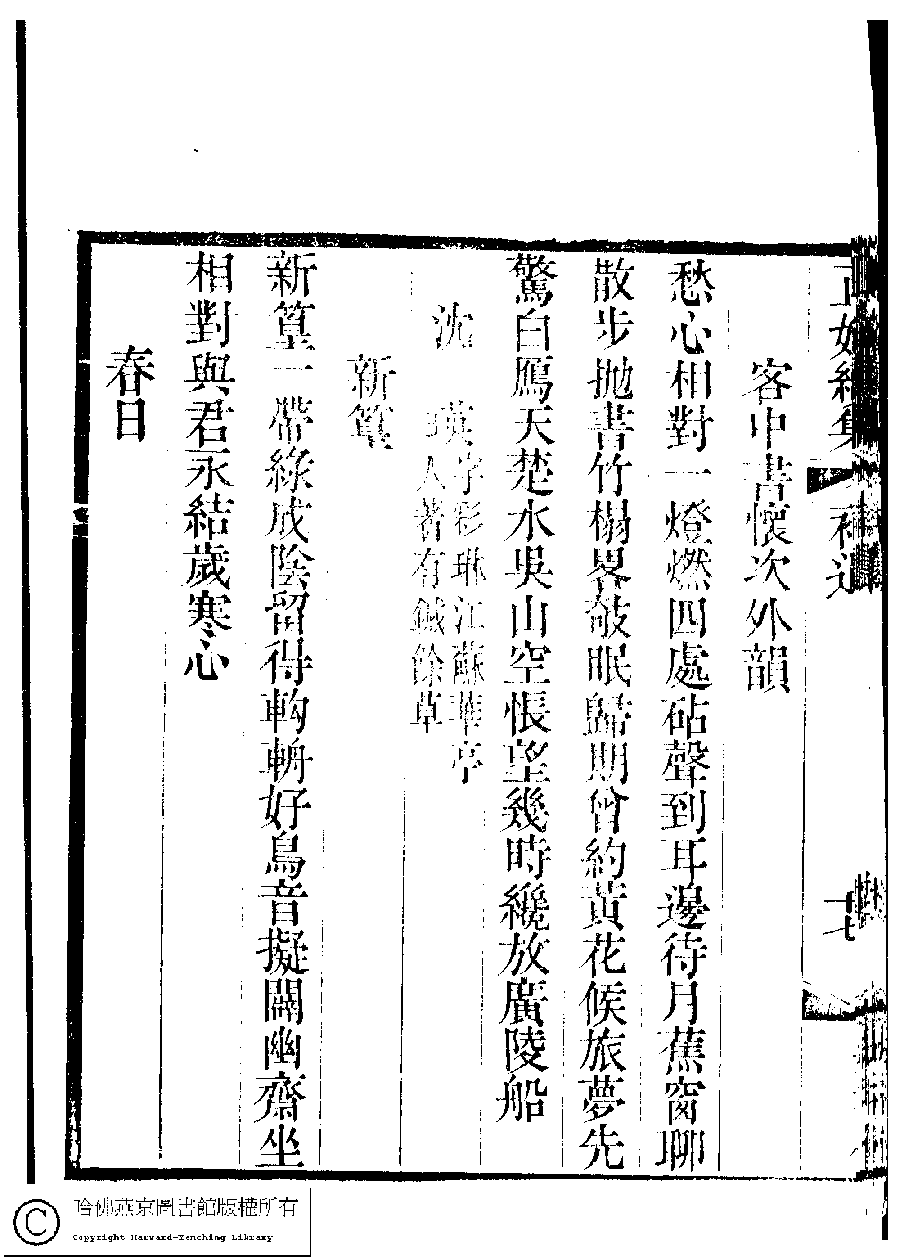 正始續集 補遺 十七
客中書懷次外韻
愁心相對一燈燃四處砧聲到耳邊待月蕉窗聊
散步拋書竹榻畧敧眠歸期曾約黃花候旅夢先
驚白鴈天楚水吳山空悵望幾時纔放廣陵船
沈 瑛 字彩琳江蘇華亭
人著有鍼餘草
新篁
新篁一帶綠成陰留得輷輈好鳥音擬闢幽齋坐
相對與君永結歲寒心
春日
哈佛燕京圖書館版權所有
Copyright Harvard-Yenching Library